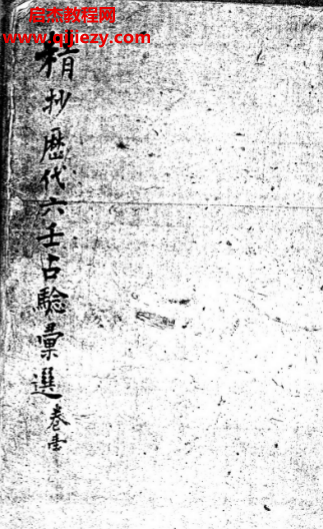 启杰教程网
www.qijiezy.com
精抄歴代六壬占驗彙選卷壹